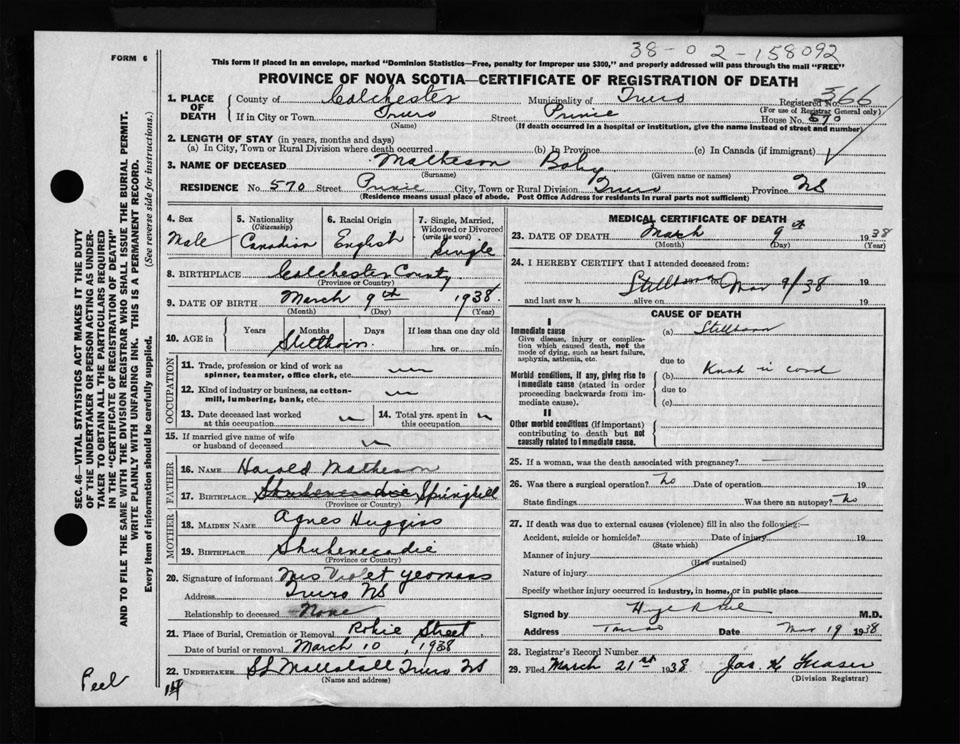 38-02-158092
FORM 6
This form if placed in an envelope, marked "Dominion Statistics—Free, penalty for improper use $300," and properly addressed will pass through the mail "FREE"
PROVINCE OF NOVA SCOTIA—CERTIFICATE OF REGISTRATION OF DEATH
1. PLACE OF DEATH
County of Colchester Municipality of Truro Registered No. 366
(For use of Registrar General only)
If in City or Town Truro Street Prince House No. 570
(Name) (If death occurred in a hospital or institution, give the name instead of street and number)
2. LENGTH OF STAY (in years, months and days)
(a) In City, Town or Rural Division where death occurred (b) In Province (c) In Canada (if immigrant)
3. NAME OF DECEASED Matheson Baby
(Surname) (Given name or names)
RESIDENCE No. 570 Street Prince City, Town or Rural Division Truro Province NS
(Residence means usual place of abode. Post Office Address for residents in rural parts not sufficient)
4. Sex Male
5. Nationality (Citizenship) Canadian
6. Racial Origin English
7. Single, Married, Widowed or Divorced (write the word) Single
8. BIRTHPLACE Colchester County
(Province or County)
9. DATE OF BIRTH March 9th 1938.
(Month) (Day) (Year)
10. AGE in Years Months Days If less than one day old
Stillborn hrs. or min.
OCCUPATION
11. Trade, profession or kind of work as spinner, teamster, office clerk, etc.
12. Kind of industry or business, as cotton-mill, lumbering, bank, etc.
13. Date deceased last worked at this occupation
14. Total yrs. spent in this occupation
15. If married give name of wife or husband of deceased
FATHER
16. NAME Harold Matheson
17. BIRTHPLACE Shubenecadie Springhill
(Province or County)
MOTHER
18. MAIDEN NAME Agnes Huggiss
19. BIRTHPLACE Shubenecadie
(Province or County)
20. Signature of informant Mrs Violet Yeomans
Address Truro NS
Relationship to deceased None
21. Place of Burial, Cremation or Removal Robie Street
Date of burial or removal March 10, 1938
22. UNDERTAKER Truro NS
(Name and address)
MEDICAL CERTIFICATE OF DEATH
23. DATE OF DEATH March 9th 1938
(Month) (Day) (Year)
24. I HEREBY CERTIFY that I attended deceased from:
Stillborn Mar 9/38 19
and last saw h alive on 19
CAUSE OF DEATH
I
Immediate cause
Give disease, injury or complication which caused death, not the mode of dying, such as heart failure, asphyxia, asthenia, etc.
(a) Stillborn
due to
Morbid conditions, if any, giving rise to immediate cause (stated in order proceeding backwards from immediate cause).
(b) Knot in cord
due to
(c)
II
Other morbid conditions (if important) contributing to death but not causally related to immediate cause.
25. If a woman, was the death associated with pregnancy?
26. Was there a surgical operation? No Date of operation 19
State findings Was there an autopsy? No
27. If death was due to external causes (violence) fill in also the following:—
Accident, suicide or homicide? Date of injury 19
(State which)
Manner of injury
(How sustained)
Nature of injury
Specify whether injury occurred in industry, in home, or in public place
Signed by M.D.
Address Truro Date Mar 19 1938
28. Registrar's Record Number
29. Filed March 21st 1938 Jas. H Fraser
(Division Registrar)
SEC. 46—VITAL STATISTICS ACT MAKES IT THE DUTY
OF THE UNDERTAKER OR PERSON ACTING AS UNDER-
TAKER TO OBTAIN ALL THE PARTICULARS REQUIRED
IN THE "CERTIFICATE OF REGISTRATION OF DEATH"
AND TO FILE THE SAME WITH THE DIVISION REGISTRAR WHO SHALL ISSUE THE BURIAL PERMIT.
WRITE PLAINLY WITH UNFADING INK. THIS IS A PERMANENT RECORD.
Every item of information should be carefully supplied. (See reverse side for instructions.)
Peel